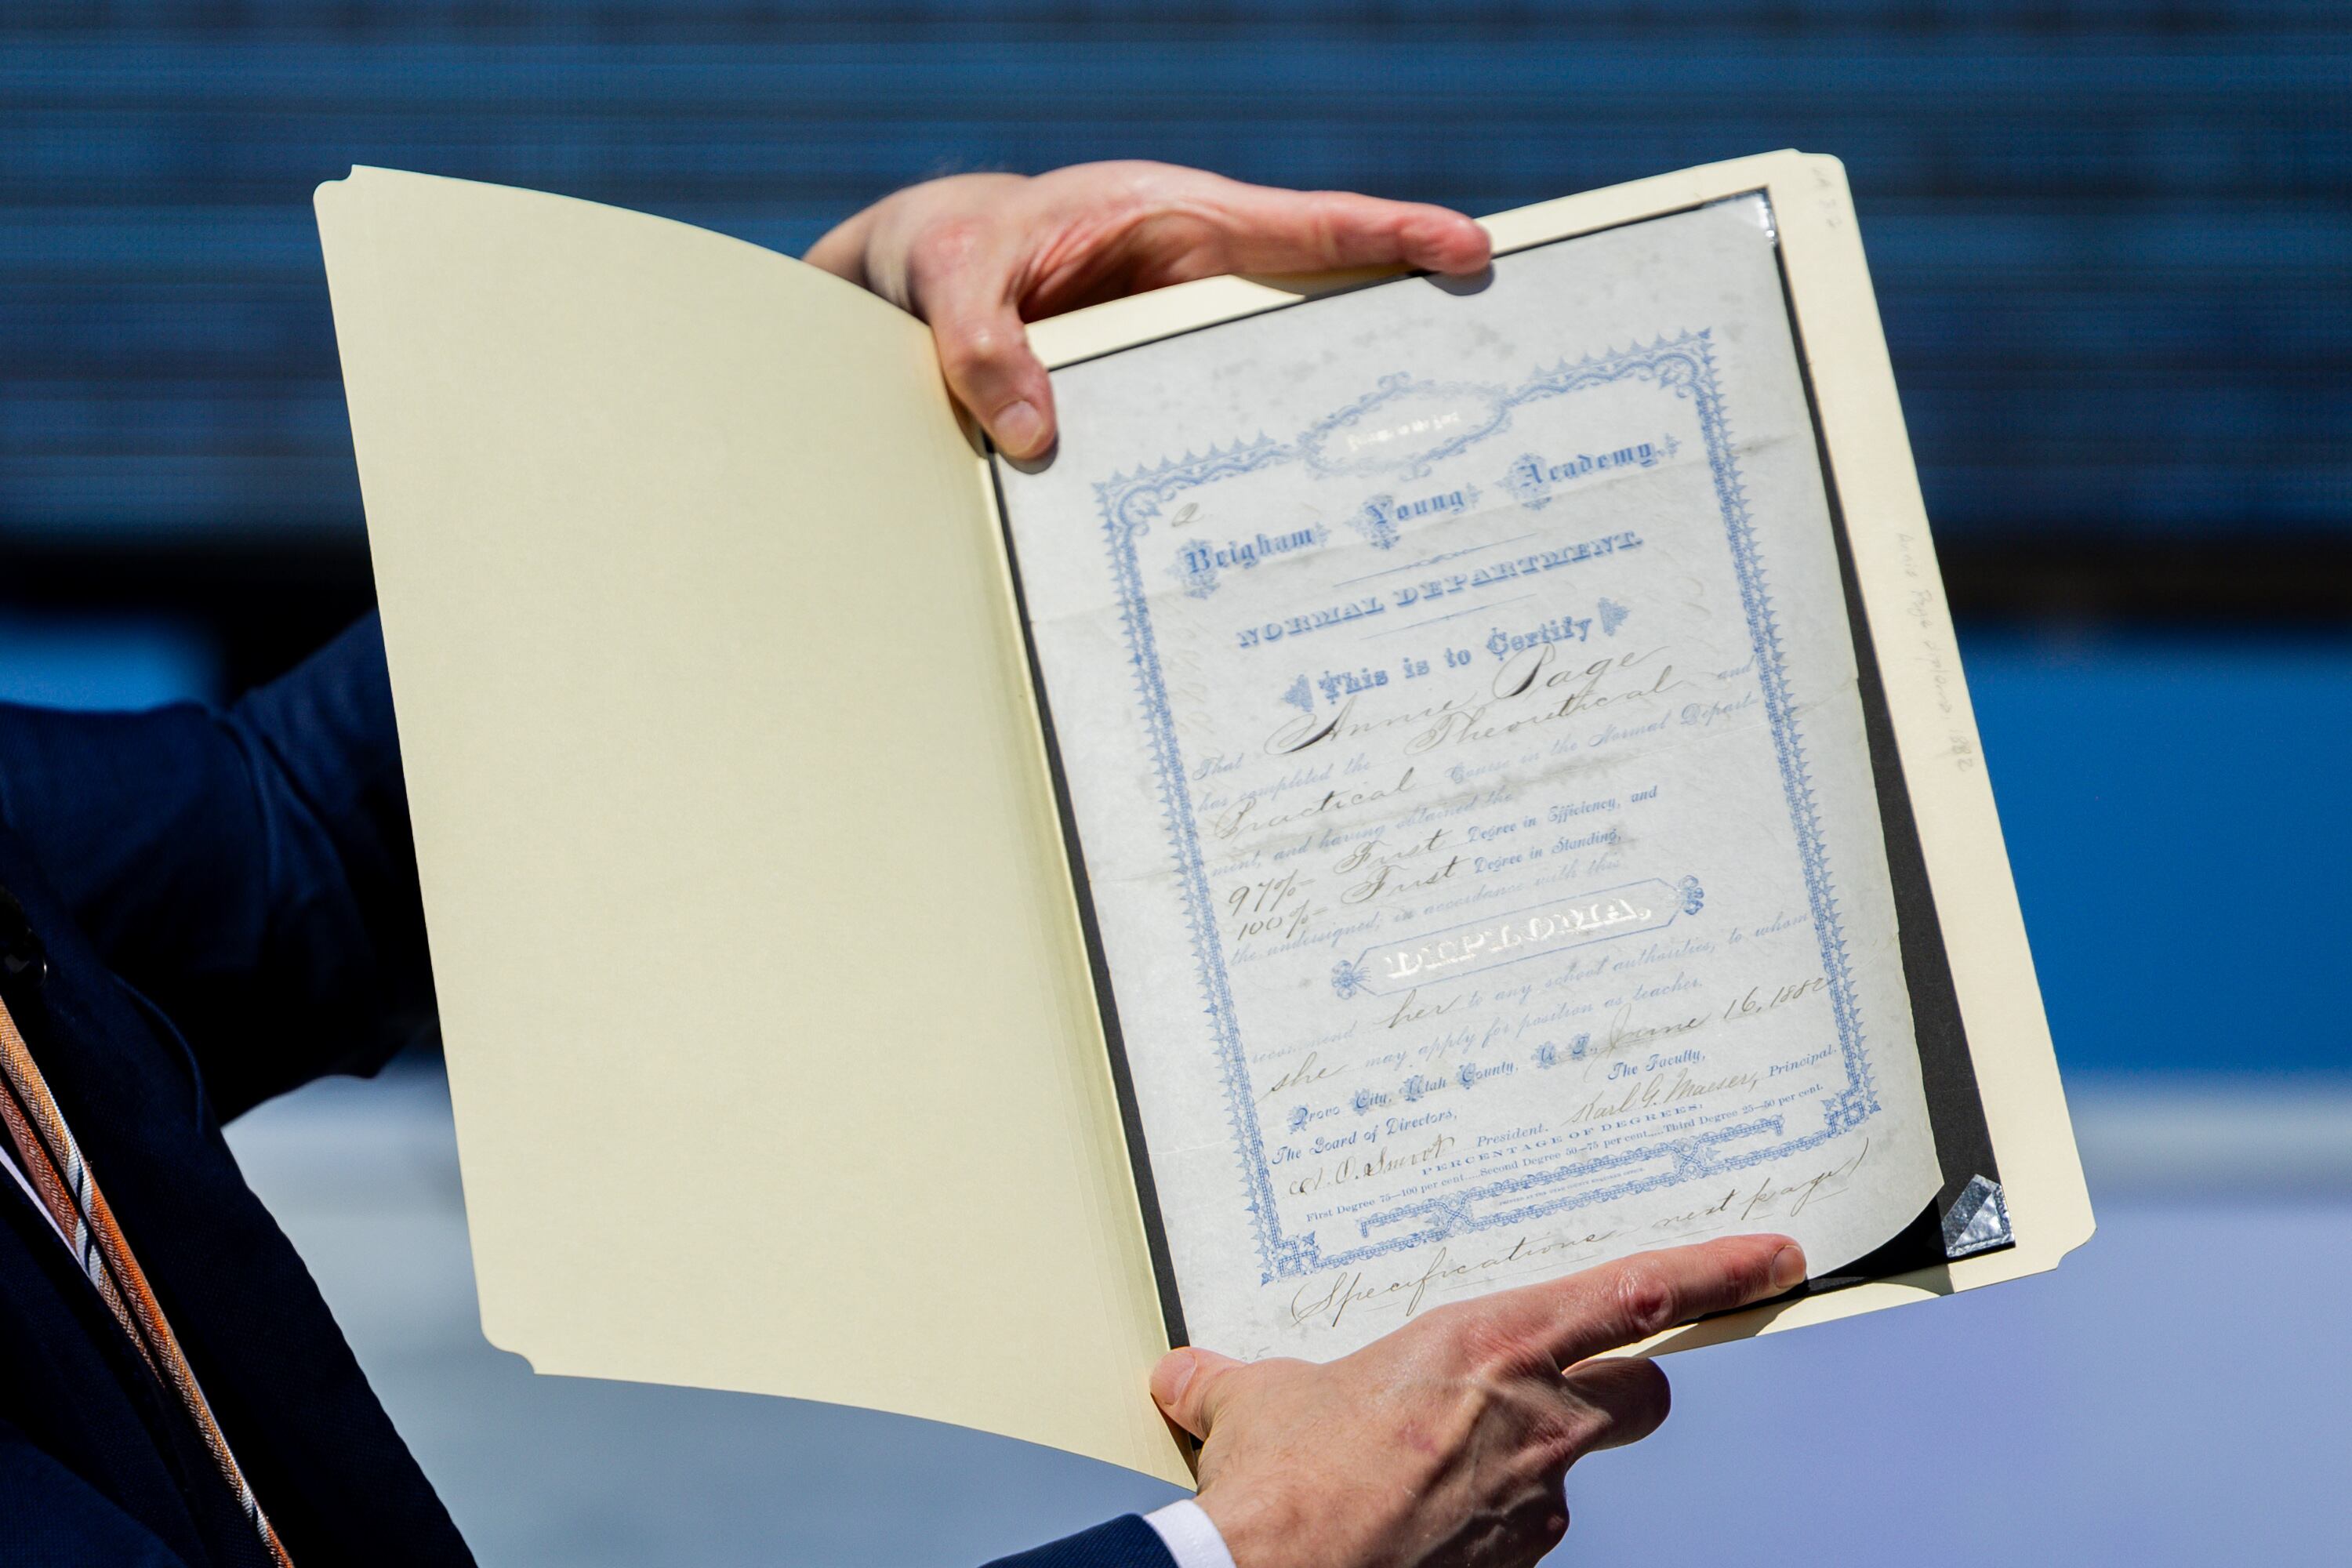 Holiness to the Lord
2
Brigham Young Academy.
NORMAL DEPARTMENT.
This is to Certify
That Annie Page
has completed the Theoretical and
Practical Course in the Normal Depart-
ment, and having obtained the
97% First Degree in Efficiency, and
100% First Degree in Standing,
the undersigned, in accordance with this
DIPLOMA,
recommend her to any school authorities, to whom
she may apply for position as teacher.
Provo City, Utah County, U. T., June 16, 1882
The Board of Directors, The Faculty,
A. O. Smoot President. Karl G. Maeser, Principal.
PERCENTAGE OF DEGREES.
First Degree 75—100 per cent....Second Degree 50—75 per cent....Third Degree 25—50 per cent.
(Specifications next page)
Annie Page diploma, 1882